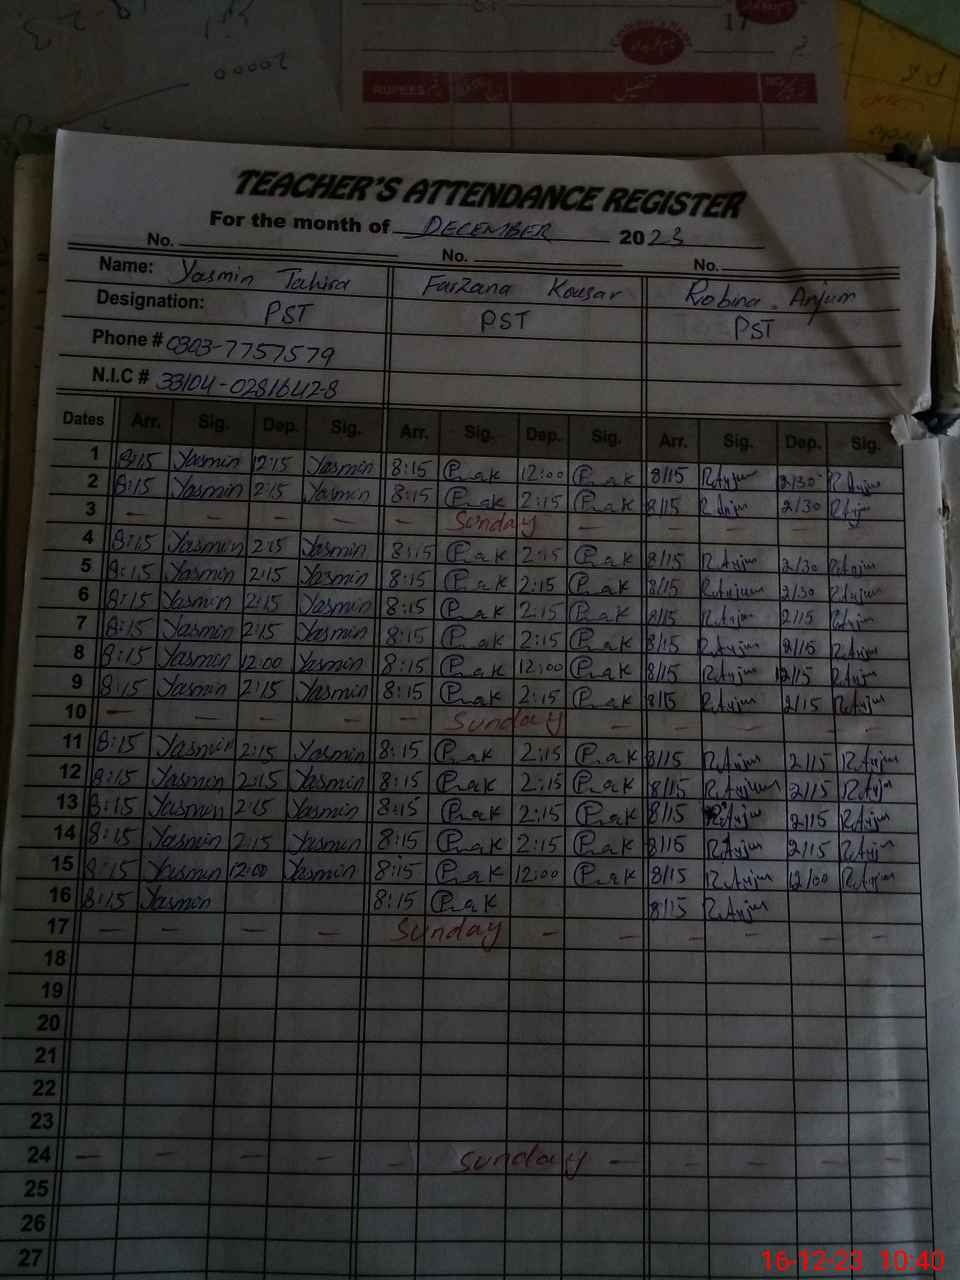 20000
17
RUPEES
TEACHER'S ATTENDANCE REGISTER
For the month of DECEMBER 2023
No. No. No.
Name: Yasmin Tahira Farzana Kousar Robina Anjum
Designation: PST PST PST
Phone # 0303-7757579
N.I.C # 33104-0281642-8
Dates Arr. Sig. Dep. Sig. Arr. Sig. Dep. Sig. Arr. Sig. Dep. Sig.
1 8:15 Yasmin 12:15 Yasmin 8:15 12:00 8/15 R.Anjum 2/30 R.Anjum
2 8:15 Yasmin 2:15 Yasmin 8:15 2:15 8/15 R.Anjum 2/30 R.Anjum
3 - - - - - Sunday - - - - - -
4 8:15 Yasmin 2:15 Yasmin 8:15 2:15 8/15 R.Anjum 2/30 R.Anjum
5 8:15 Yasmin 2:15 Yasmin 8:15 2:15 8/15 R.Anjum 2/30 R.Anjum
6 8:15 Yasmin 2:15 Yasmin 8:15 2:15 8/15 R.Anjum 2/15 R.Anjum
7 8:15 Yasmin 2:15 Yasmin 8:15 2:15 8/15 R.Anjum 2/15 R.Anjum
8 8:15 Yasmin 12:00 Yasmin 8:15 12:00 8/15 R.Anjum 12/15 R.Anjum
9 8:15 Yasmin 2:15 Yasmin 8:15 2:15 8/15 R.Anjum 2/15 R.Anjum
10 - - - - - Sunday - - - - - -
11 8:15 Yasmin 2:15 Yasmin 8:15 2:15 8/15 R.Anjum 2/15 R.Anjum
12 8:15 Yasmin 2:15 Yasmin 8:15 2:15 8/15 R.Anjum 2/15 R.Anjum
13 8:15 Yasmin 2:15 Yasmin 8:15 2:15 8/15 R.Anjum 2/15 R.Anjum
14 8:15 Yasmin 2:15 Yasmin 8:15 2:15 8/15 R.Anjum 2/15 R.Anjum
15 8:15 Yasmin 12:00 Yasmin 8:15 12:00 8/15 R.Anjum 12/00 R.Anjum
16 8:15 Yasmin 8:15 8/15 R.Anjum
17 - - - - Sunday - - - - - -
18
19
20
21
22
23
24 - - - - - Sunday - - - - - -
25
26
27
16-12-23 10:40